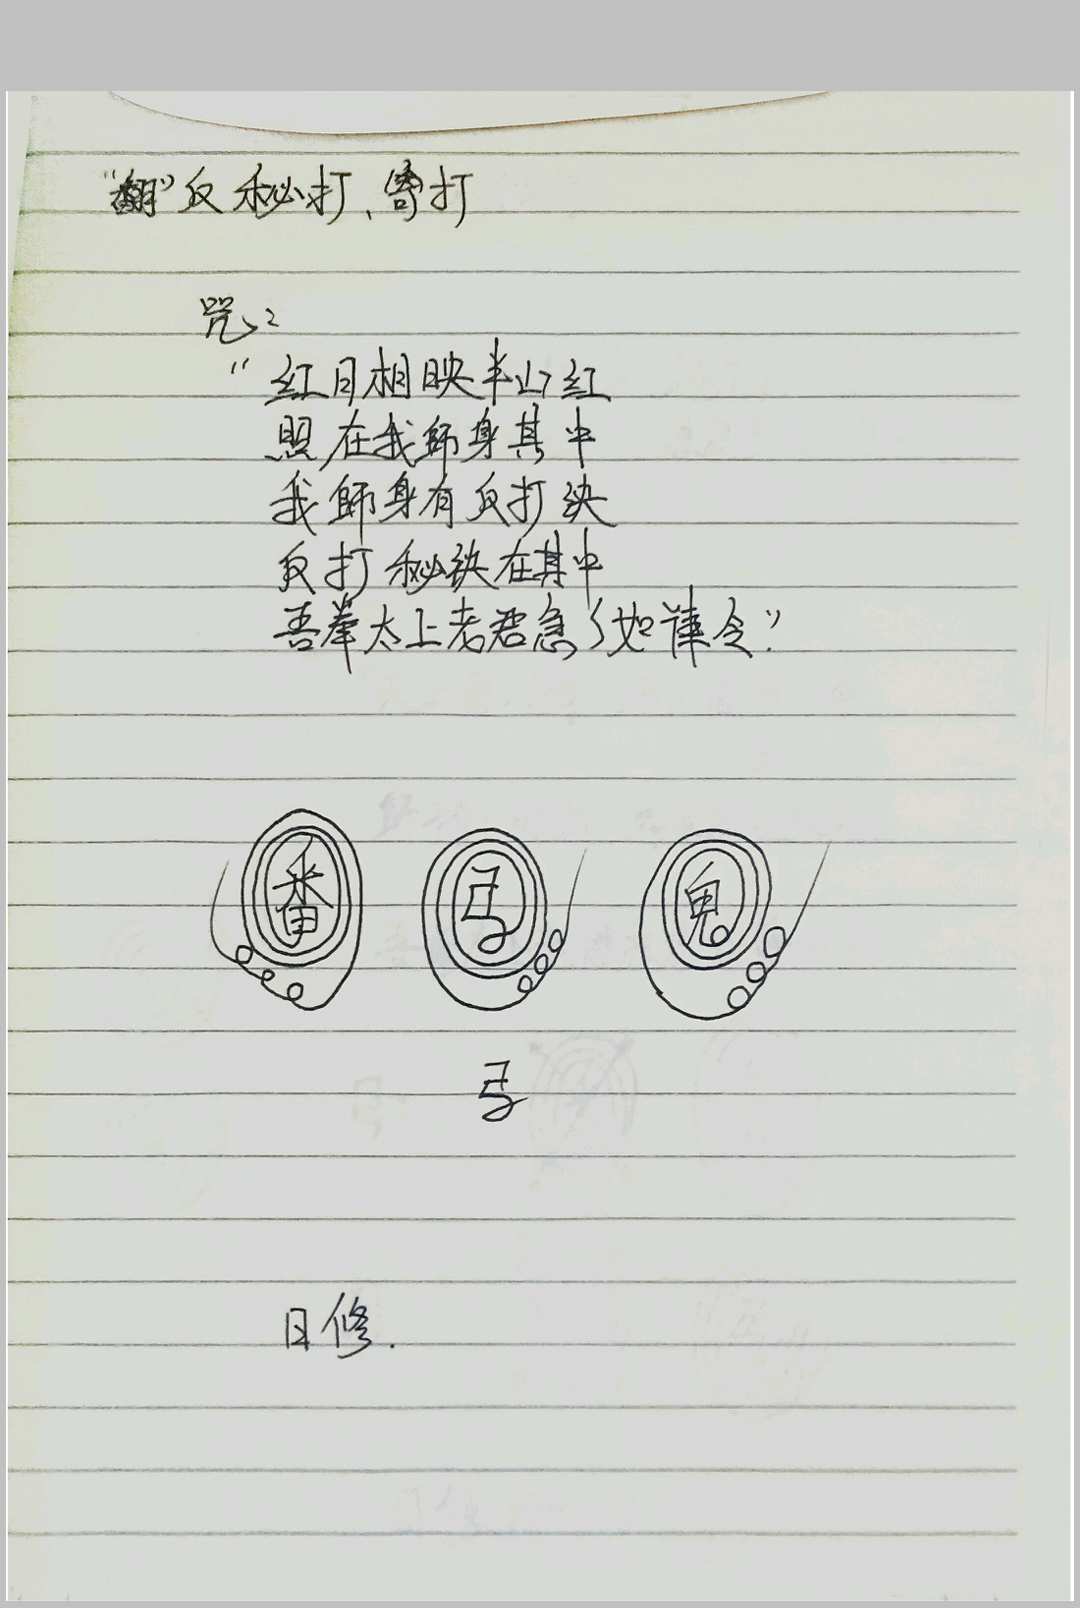 “翻”反秘打、寄打
咒:
“红日相映半山红
照在我師身其中
我師身有反打诀
反打秘诀在其中
吾奉太上老君急々如律令”.
番 弓 鬼
弓
日修.